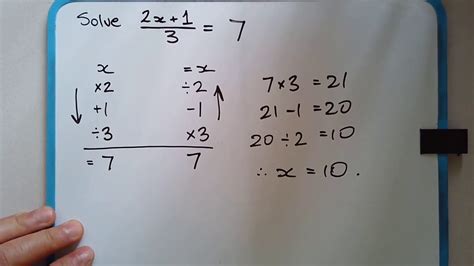 Solve (2x+1)/3 = 7
x = x
×2 ÷2
+1 -1
÷3 ×3
= 7 7
7×3 = 21
21 - 1 = 20
20 ÷ 2 = 10
∴ x = 10.